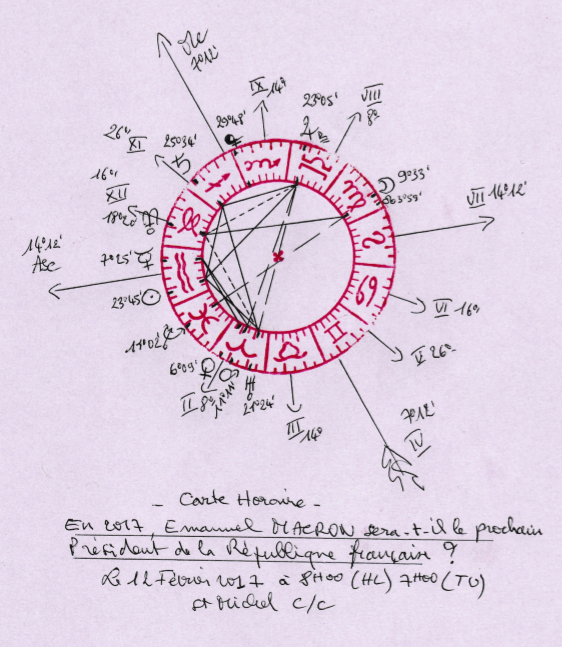 Mc
7°12'
IX 14°
23°05'
VIII
8°
29°48'
26°
XI
25°34'
16°
XII
18°20'
9°33'
3°59'
VII 14°12'
14°12'
Asc
7°25'
23°45'
VI 16°
11°02'
V 26°
6°09'
II 8°
21°24'
III 14°
7°12'
IV
- Carte Horaire -
En 2017, Emanuel MACRON sera-t-il le prochain
Président de la République française ?
Le 12 Février 2017 à 8H00 (HL) 7H00 (TU)
St Michel C/C